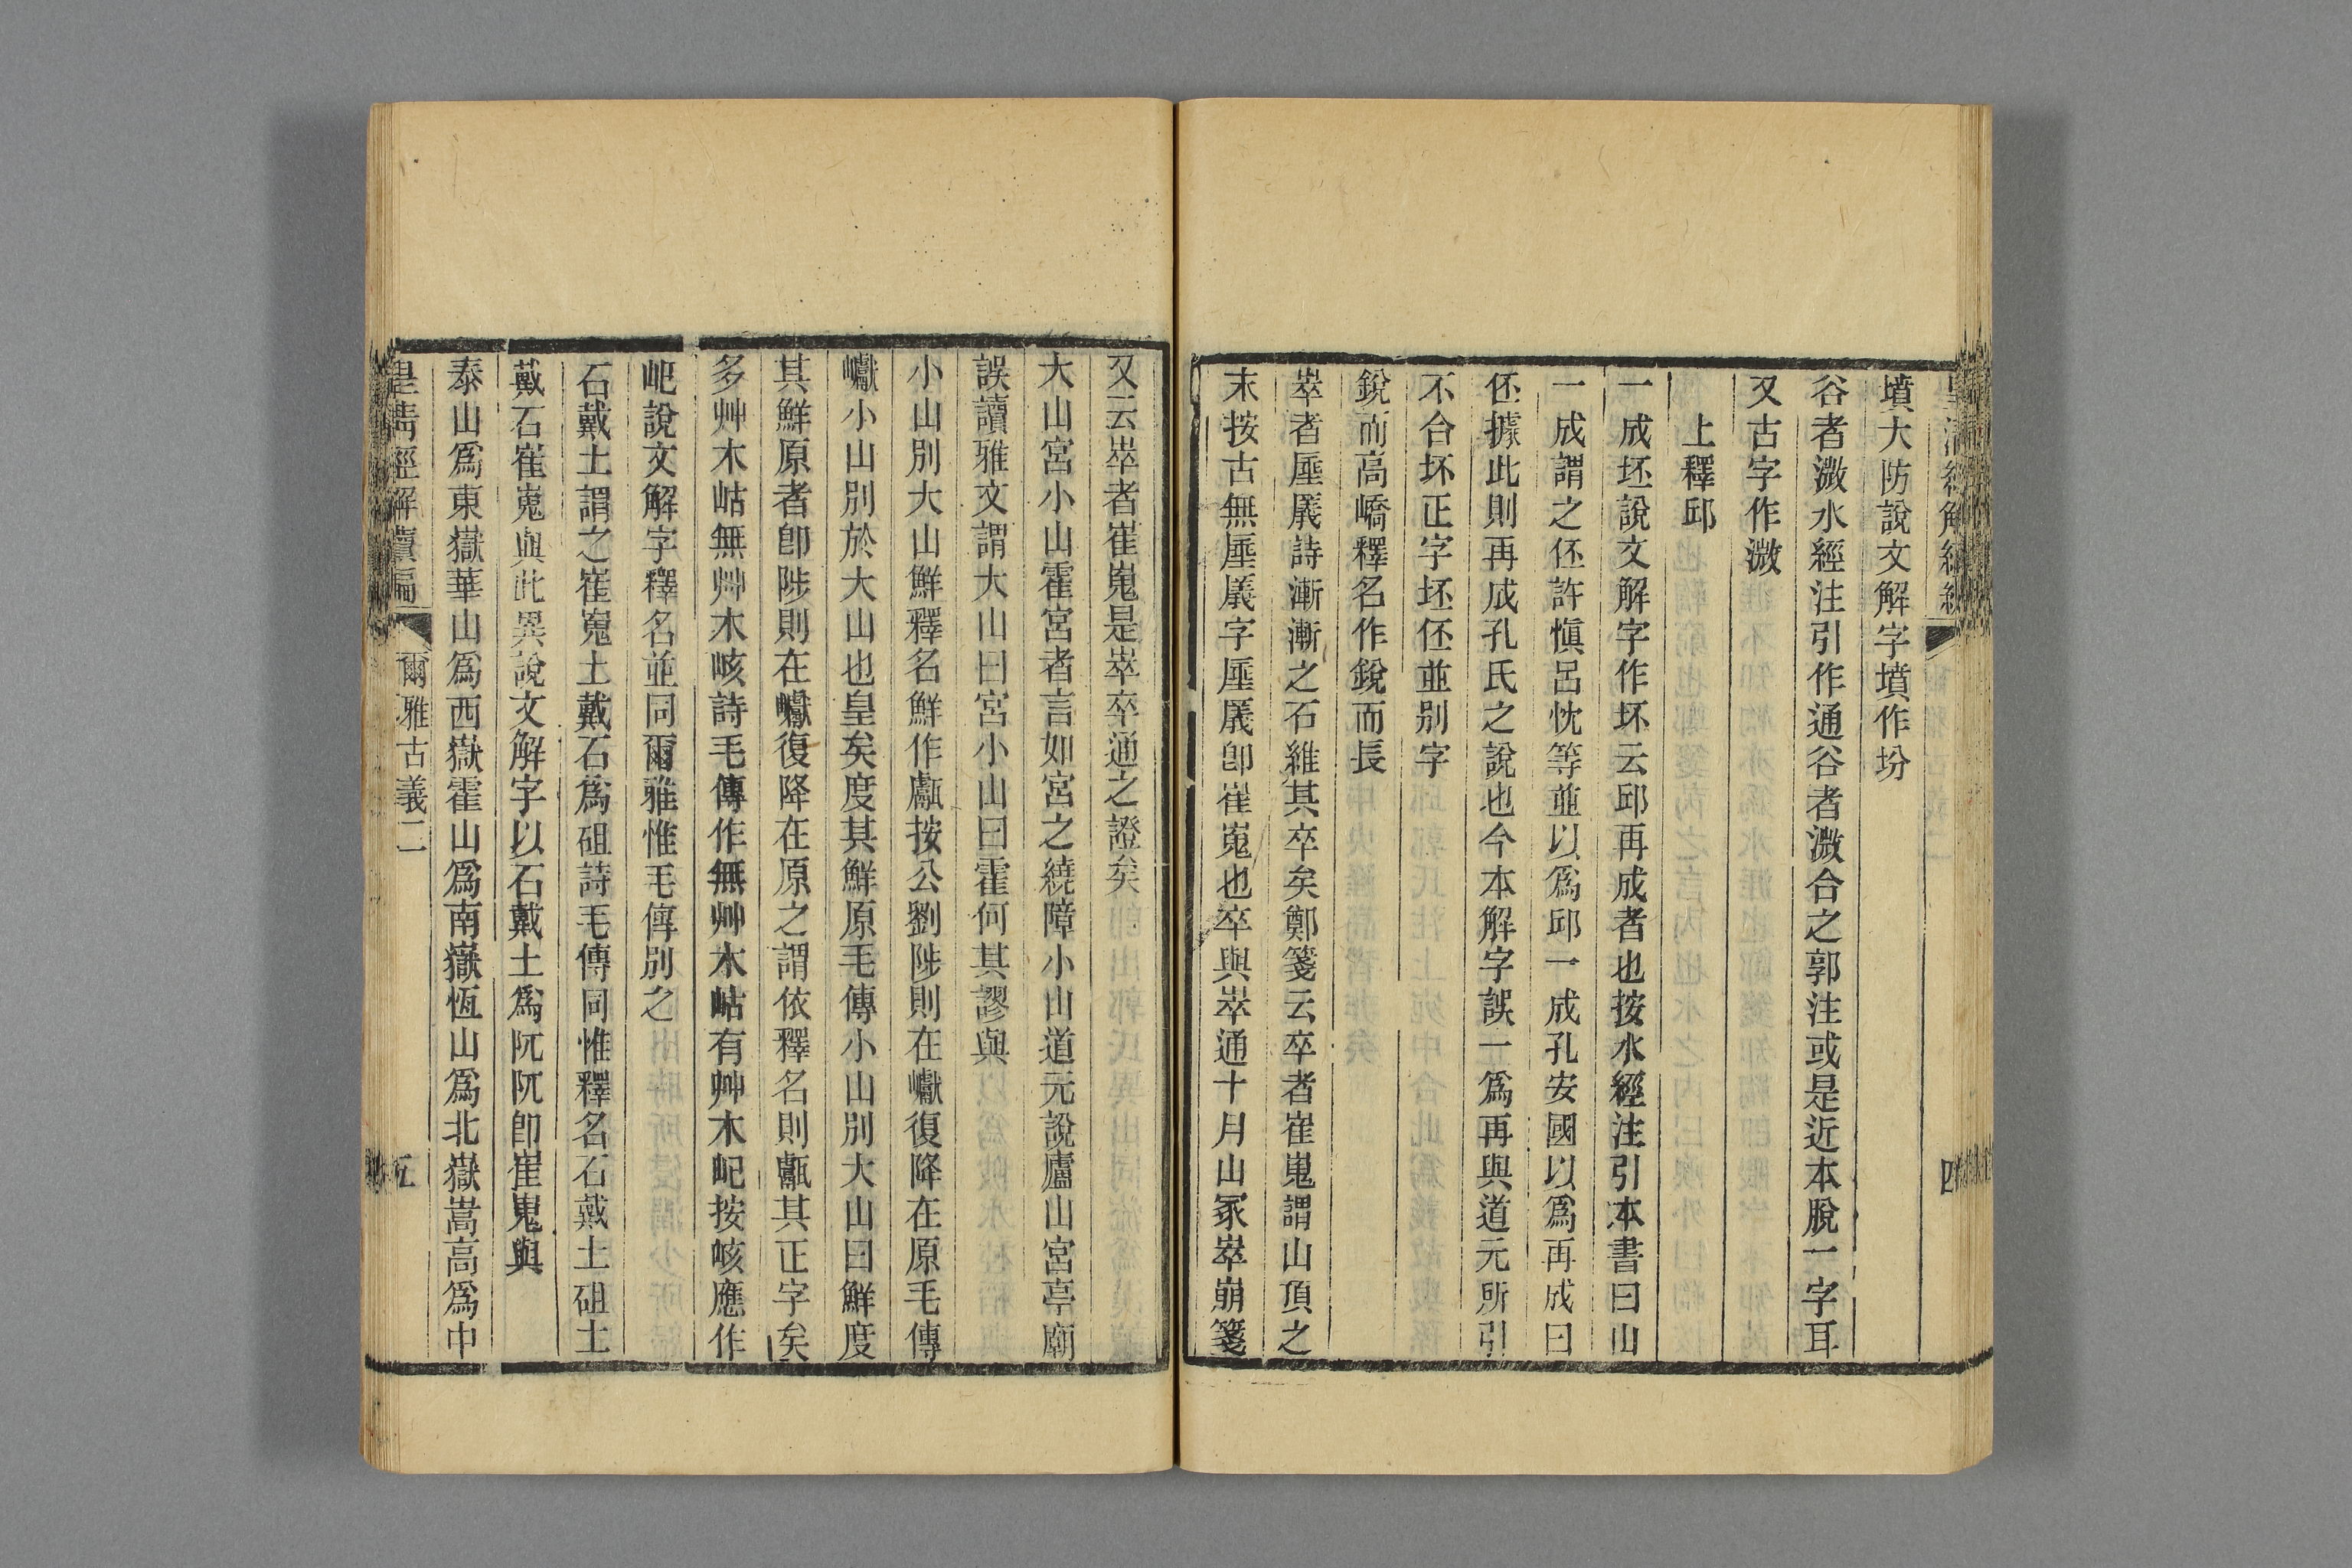 墳大防說文解字墳作坋
谷者溦水經注引作通谷者溦合之郭注或是近本脫一字耳
又古字作溦
上釋邱
一成坯說文解字作坏云邱再成者也按水經注引本書曰山
一成謂之伾許愼呂忱等並以爲邱一成孔安國以爲再成曰
伾據此則再成孔氏之說也今本解字誤一爲再與道元所引
不合坏正字坯伾並別字
銳而高嶠釋名作銳而長
崒者厜㕒詩漸漸之石維其卒矣鄭箋云卒者崔嵬謂山頂之
末按古無厜㕒字厜㕒卽崔嵬也卒與崒通十月山冢崒崩箋
又云崒者崔嵬是崒卒通之證矣
大山宮小山霍宮者言如宮之繞障小山道元說廬山宮亭廟
誤讀雅文謂大山曰宮小山曰霍何其謬與
小山別大山鮮釋名鮮作甗按公劉陟則在巘復降在原毛傳
巘小山別於大山也皇矣度其鮮原毛傳小山別大山曰鮮度
其鮮原者卽陟則在巘復降在原之謂依釋名則甗其正字矣
多艸木岵無艸木峐詩毛傳作無艸木岵有艸木屺按峐應作
屺說文解字釋名並同爾雅惟毛傳別之
石戴土謂之崔嵬土戴石爲砠詩毛傳同惟釋名石戴土砠土
戴石崔嵬與此異說文解字以石戴土爲阢阢卽崔嵬與
泰山爲東嶽華山爲西嶽霍山爲南嶽恆山爲北嶽嵩高爲中
皇淸經解續編 爾雅古義二 五